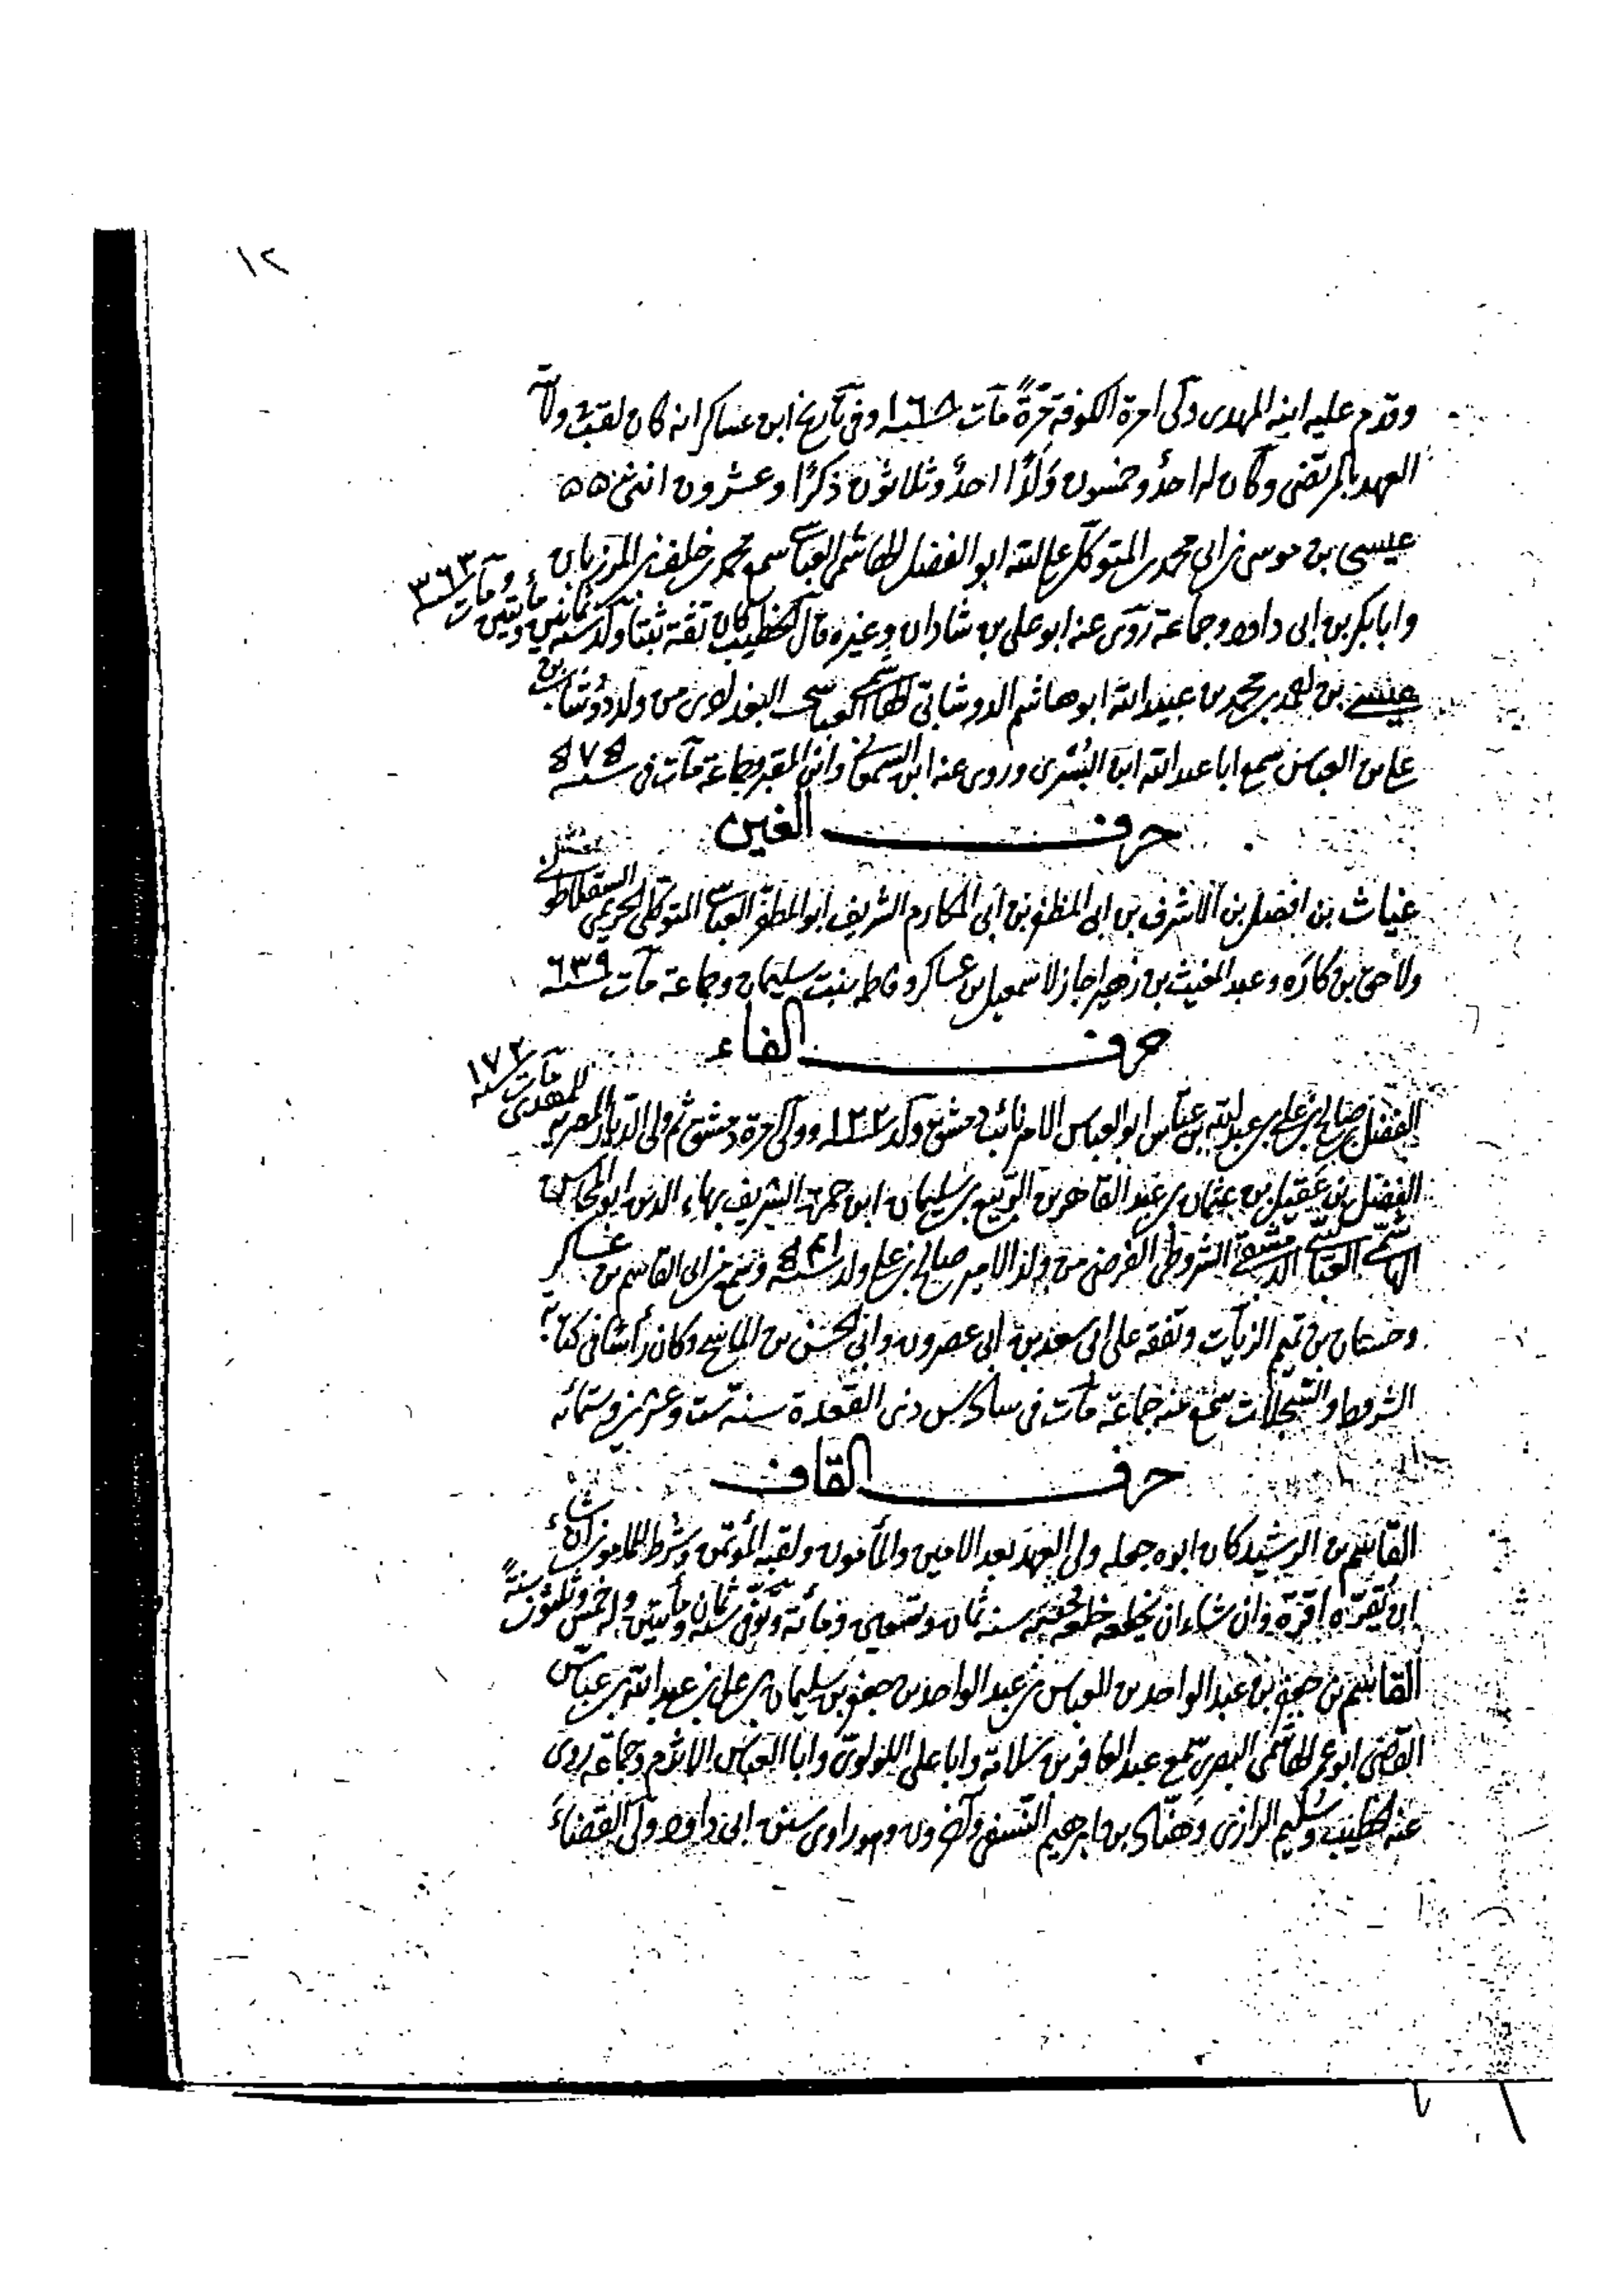 ١٢
وقدم عليه ابنه المهدى وولى امرة الكوفة مرةً مات سنة ١٦٨ وفى تاريخ ابن عساكر انه كان لقب ولاية
العهد بالمرتضى وكان له احدٌ وخمسون ولدًا احدٌ وثلاثون ذكرًا وعشرون انثى
عيسى بن موسى بن ابى محمد بن المتوكل على الله ابو الفضل الهاشمى العباسى سمع محمد بن خلف بن المرزبان
وابا بكر بن ابى داود وجماعة روى عنه ابو على بن شاذان وغيره قال الخطيب كان ثقة ثبتا ولد سنة ثمانين ومأتين ومات سنة ٣٦٣
عيسى بن احمد بن محمد بن عبيد الله ابو هاشم الدوشابى الهاشمى العباسى البغدادى من ولد دوشاب بن
على بن العباس سمع ابا عبد الله ابن البسرى وروى عنه ابن السمعانى وابن المقير وجماعة مات فى سنة ٥٧٥
حرف الغين
غياث بن افضل بن الاشرف بن ابى المظفر بن ابى المكارم الشريف ابو المظفر العباسى المتوكلى الحريمى السقلاطونى
ولاحق بن كاره وعبد المغيث بن زهير اجاز لاسمعيل بن عساكر وفاطمه بنت سليمان وجماعة مات سنة ٦٣٩
حرف الفاء
الفضل بن صالح بن على بن عبد الله بن عباس ابو العباس الامير نائب دمشق ولد سنة ١٢٢ وولى امرة دمشق ثم ولى الديار المصرية للمهدى مات سنة ١٧٢
الفضل بن عقيل بن عثمان بن عبد القاهر بن الربيع بن سليمان ابن حمزة الشريف بهاء الدين ابو المحاسن
الهاشمى العباسى الدمشقى الشروطى الفرضى من ولد الامير صالح بن على ولد سنة ٥٤١ وسمع من ابى القاسم بن عساكر
وحسان بن تميم الزيات وتفقه على ابى سعد بن ابى عصرون وابى الحسن بن الماسح وكان رأسا فى كتابة
الشروط والسجلات سمع منه جماعة مات فى سادس ذى القعدة سنة ست وعشرين وستمائه
حرف القاف
القاسم بن الرشيد كان ابوه جعله ولى العهد بعد الامين والمأمون ولقبه المؤتمن وشرط للمامون ان شاء
ان يقره اقره وان شاء ان يخلعه خلعه فخلعه سنة ثمان وتسعين ومائة وتوفى سنة ثمان ومأيتين وله خمس وثلثون سنةً
القاسم بن جعفر بن عبد الواحد بن العباس بن عبد الواحد بن جعفر بن سليمان بن على بن عبد الله بن عباس
القاضى ابو عمر الهاشمى البصرى سمع عبد الغافر بن سلامة وابا على اللولوى وابا العباس الاثرم وجماعة روى
عنه الخطيب وسليم الرازى وهناد بن ابرهيم النسفى وآخرون وهو راوى سنن ابى داود ولى القضاء